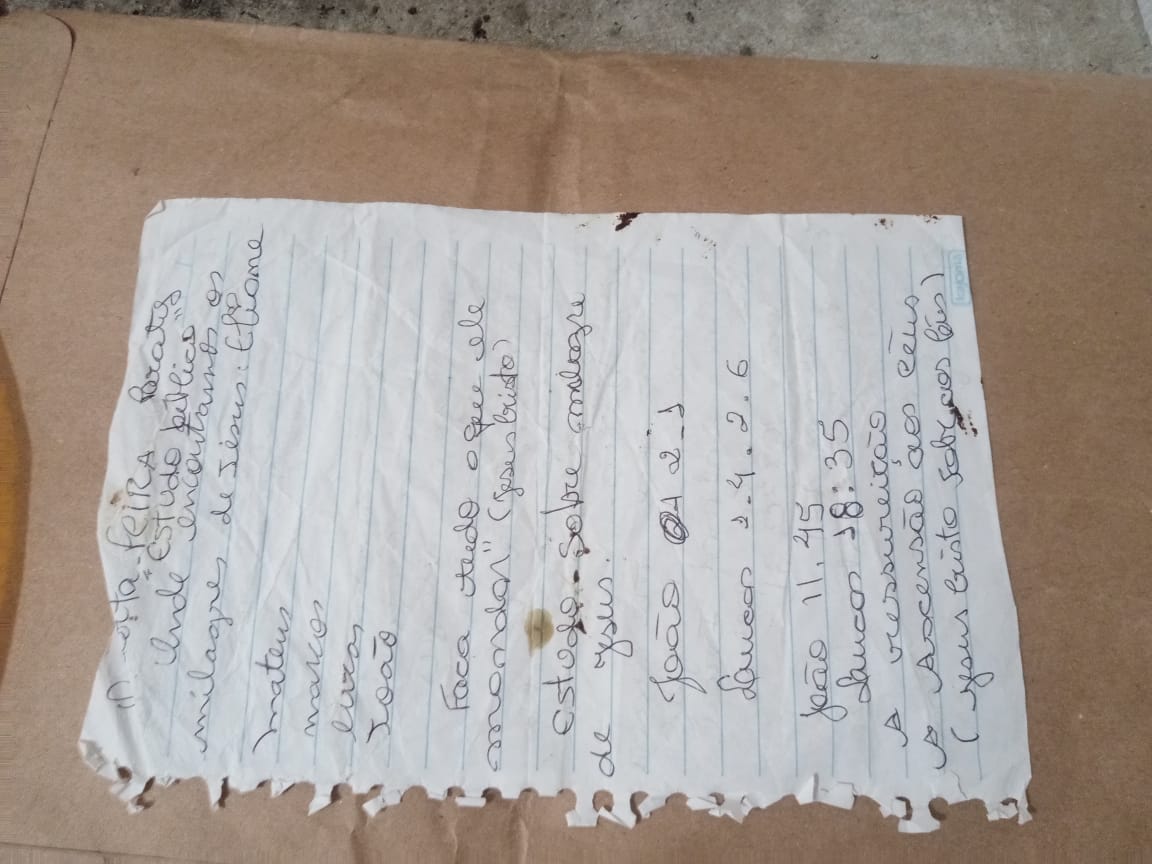 "Estudo bíblico"
Onde encontramos os
milagres de Jesus:
mateus
marcos
lucas
João
Faça tudo o que ele
mandar" (Jesus Cristo)
Estudo sobre milagre
de Jesus.
João 2-1
Lucas 1.4.2.6
João 11.45
Lucas 18:35
A ressurreição
A Ascensão aos céus
(Jesus Cristo sobe aos céus)